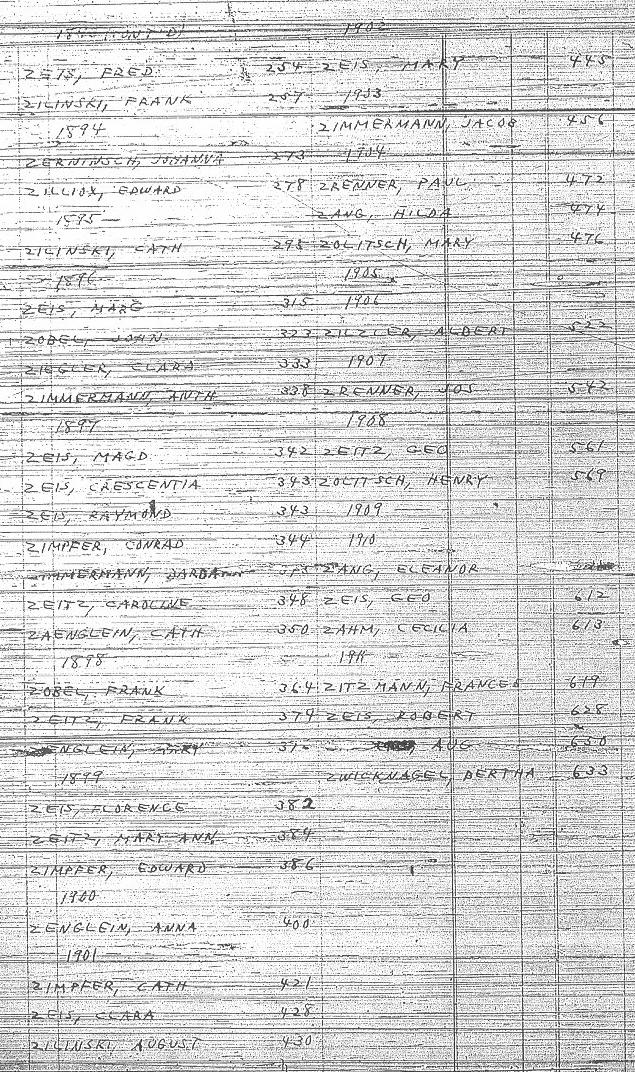 (CONT'D)
ZEIS, FRED 254
ZILINSKI, FRANK 257
1894
ZERNINSCH, JOHANNA 273
ZILLIOX, EDWARD 278
1895
ZILINSKI, CATH 295
1896
ZEIS, MARG 315
ZOBEL, JOHN 323
ZIEGLER, CLARA 333
ZIMMERMANN, ANTH 338
1897
ZEIS, MAGD 342
ZEIS, CRESCENTIA 343
ZEIS, RAYMOND 343
ZIMPFER, CONRAD 344
ZEITZ, CAROLINE 348
ZAENGLEIN, CATH 350
1898
ZOBEL, FRANK 364
ZEITZ, FRANK 374
1899
ZEIS, FLORENCE 382
ZEITZ, MARY ANN 384
ZIMPFER, EDWARD 386
1900
ZENGLEIN, ANNA 400
1901
ZIMPFER, CATH 421
ZEIS, CLARA 428
ZILINSKI, AUGUST 430
1902
ZEIS, MARY 445
1903
ZIMMERMANN, JACOB 456
1904
ZRENNER, PAUL 472
ZANG, HILDA 474
ZOLITSCH, MARY 476
1905
1906
ZILZLER, ALBERT 522
1907
ZRENNER, JOS 542
1908
ZEITZ, GEO 561
ZOLITSCH, HENRY 569
1909
1910
ZANG, ELEANOR
ZEIS, GEO 612
ZAHM, CECILIA 613
1911
ZITZMANN, FRANCES 619
ZEIS, ROBERT 628
AUG 630
ZWICKNAGEL, BERTHA 633